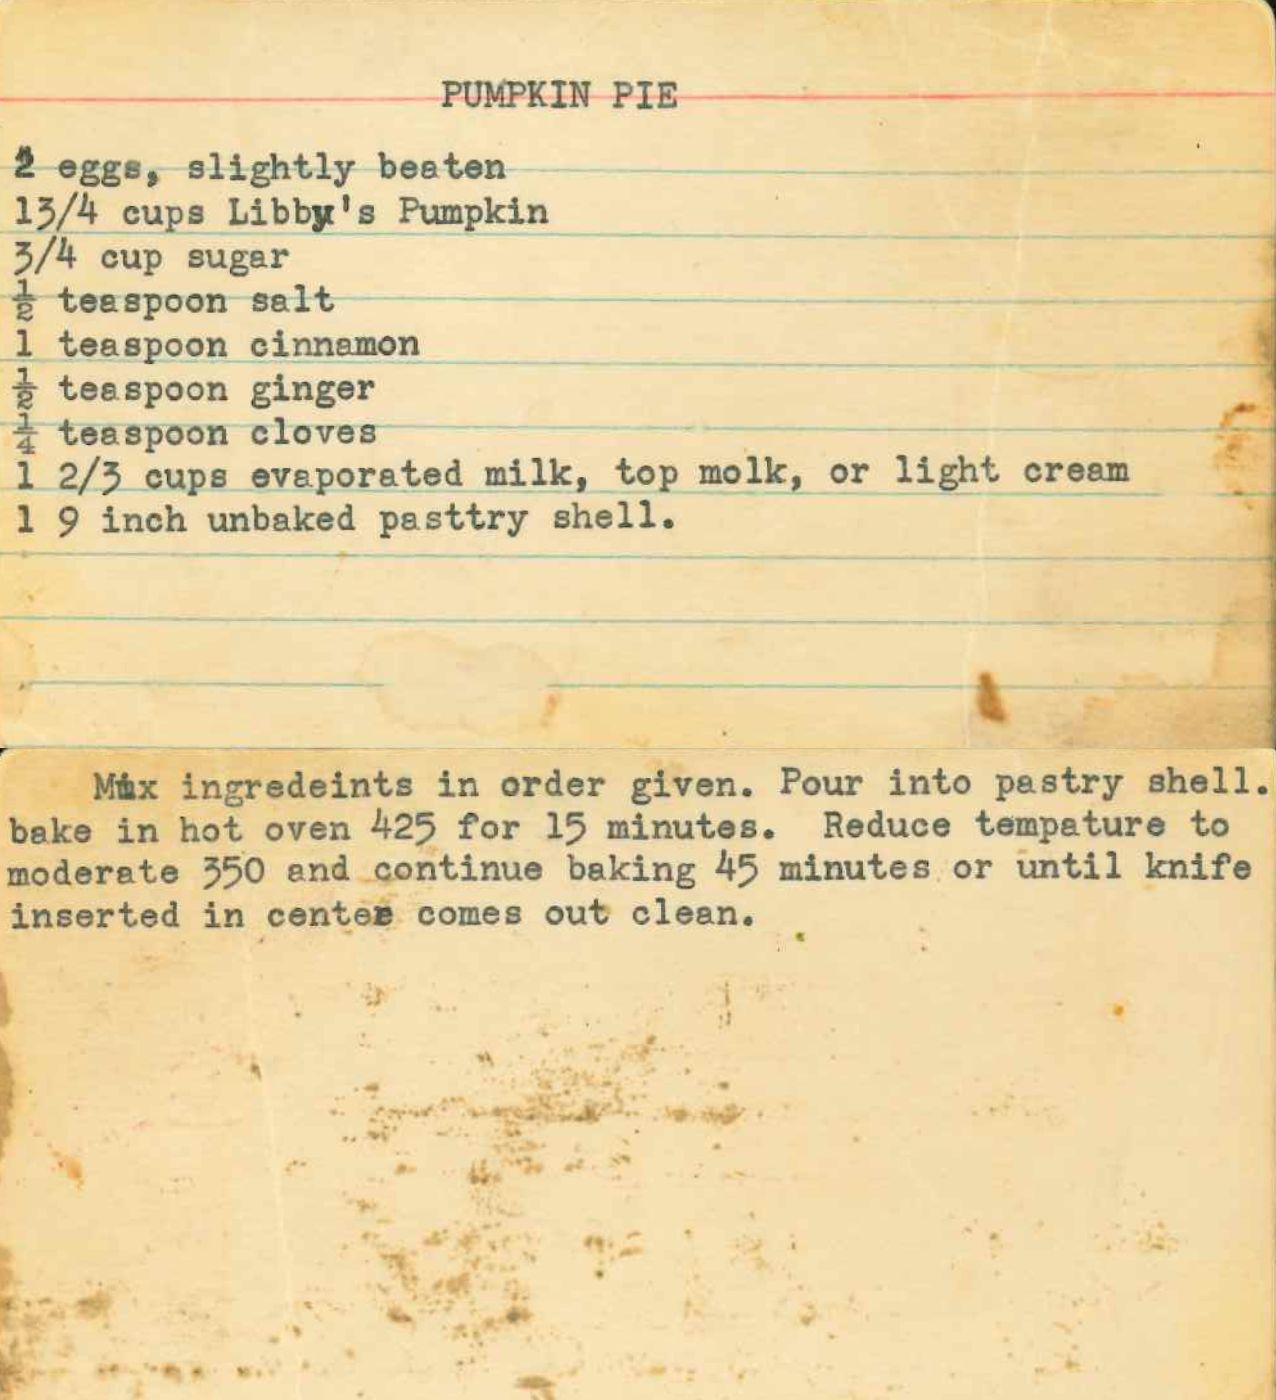 PUMPKIN PIE
2 eggs, slightly beaten
13/4 cups Libby's Pumpkin
3/4 cup sugar
½ teaspoon salt
1 teaspoon cinnamon
½ teaspoon ginger
¼ teaspoon cloves
1 2/3 cups evaporated milk, top molk, or light cream
1 9 inch unbaked pasttry shell.
Mix ingredeints in order given. Pour into pastry shell.
bake in hot oven 425 for 15 minutes. Reduce tempature to
moderate 350 and continue baking 45 minutes or until knife
inserted in center comes out clean.